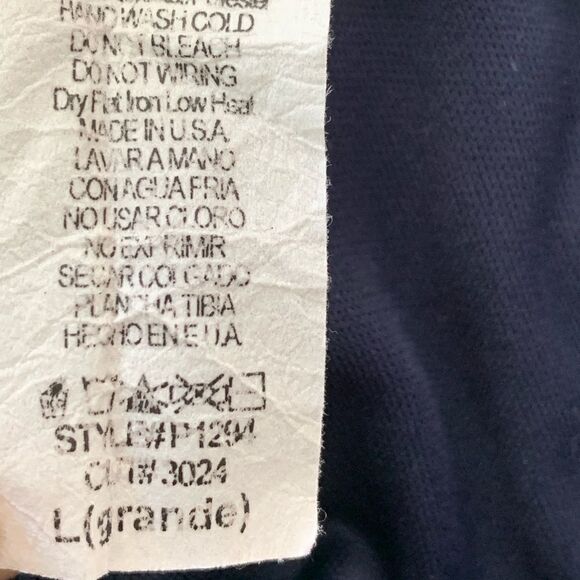 HAND WASH COLD
DO NOT BLEACH
DO NOT WIRING
Dry Flat Iron Low Heat
MADE IN U.S.A.
LAVAR A MANO
CON AGUA FRIA
NO USAR CLORO
NO EXPRIMIR
SECAR COLGADO
PLANCHA TIBIA
HECHO EN E.U.A
STYLE# P1294
CUT# 3024
L(grande)